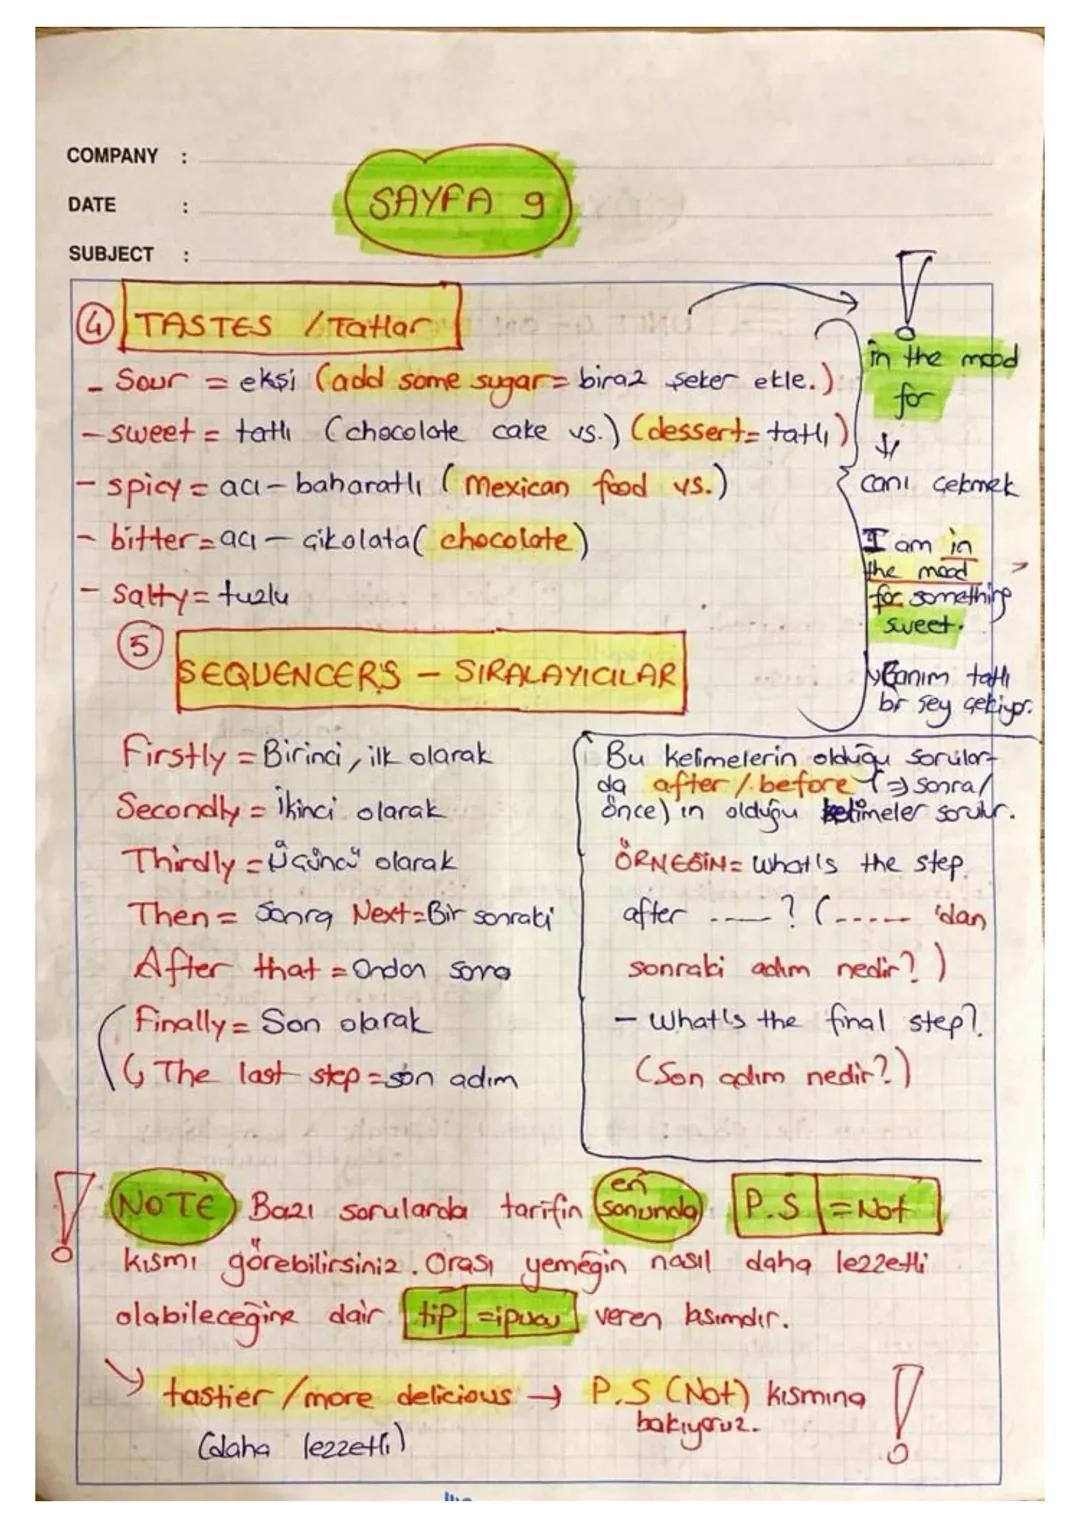 COMPANY :
DATE :
SUBJECT :
SAYFA 9
4 TASTES / Tatlar
- Sour = ekşi (add some sugar = biraz şeker ekle.)
- sweet = tatlı (chocolate cake vs.) (dessert = tatlı)
- spicy = acı - baharatlı (Mexican food vs.)
- bitter = acı - çikolata (chocolate)
- Salty = tuzlu
!
in the mood
for
canı çekmek
I am in
the mood
for something
sweet.
Canım tatlı
bir şey çekiyor.
5
SEQUENCERS - SIRALAYICILAR
Firstly = Birinci, ilk olarak
Secondly = İkinci olarak
Thirdly = Üçüncü olarak
Then = Sonra Next = Bir sonraki
After that = Ondan sonra
Finally = Son olarak
The last step = son adım
Bu kelimelerin olduğu sorular-
da after / before (=> sonra/
önce) ın olduğu kelimeler sorulur.
ÖRNEĞİN = What's the step
after -----? (----- 'dan
sonraki adım nedir?)
- What's the final step?
(Son adım nedir?)
! NOTE Bazı sorularda tarifin en sonunda P.S = Not
kısmı görebilirsiniz. Orası yemeğin nasıl daha lezzetli
olabileceğine dair tip = ipucu veren kısımdır.
tastier / more delicious → P.S (Not) kısmına
bakıyoruz. !
(daha lezzetli)